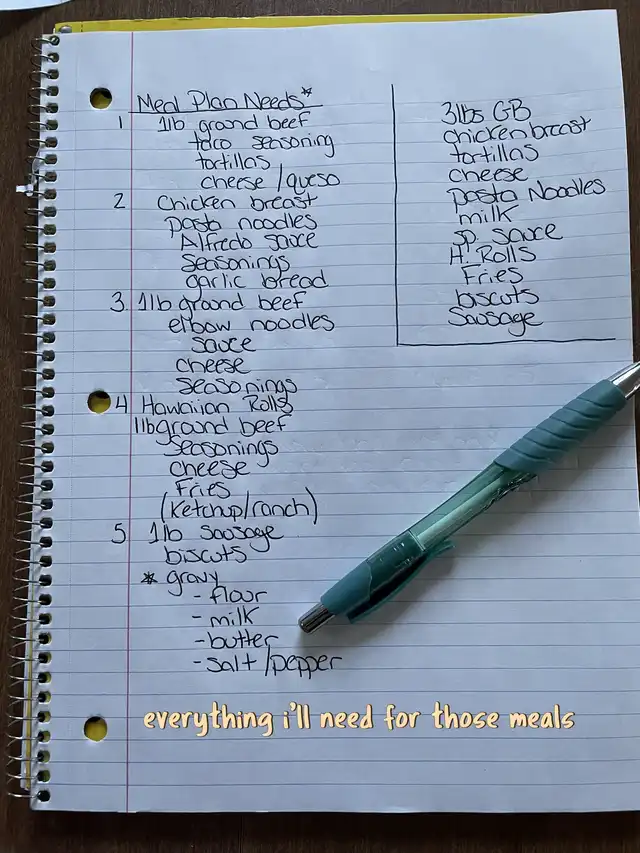 Meal Plan Needs*
1 1lb ground beef
taco seasoning
tortillas
cheese/queso
2 Chicken breast
pasta noodles
Alfredo sauce
Seasonings
garlic bread
3. 1lb ground beef
elbow noodles
sauce
cheese
seasonings
4 Hawaiian Rolls
1lb ground beef
seasonings
cheese
Fries
(Ketchup/ranch)
5 1lb sausage
biscuts
* gravy
- flour
- milk
- butter
- salt/pepper
3lbs GB
chicken breast
tortillas
cheese
pasta Noodles
milk
sp. sauce
H. Rolls
Fries
biscuts
Sausage
everything i'll need for those meals